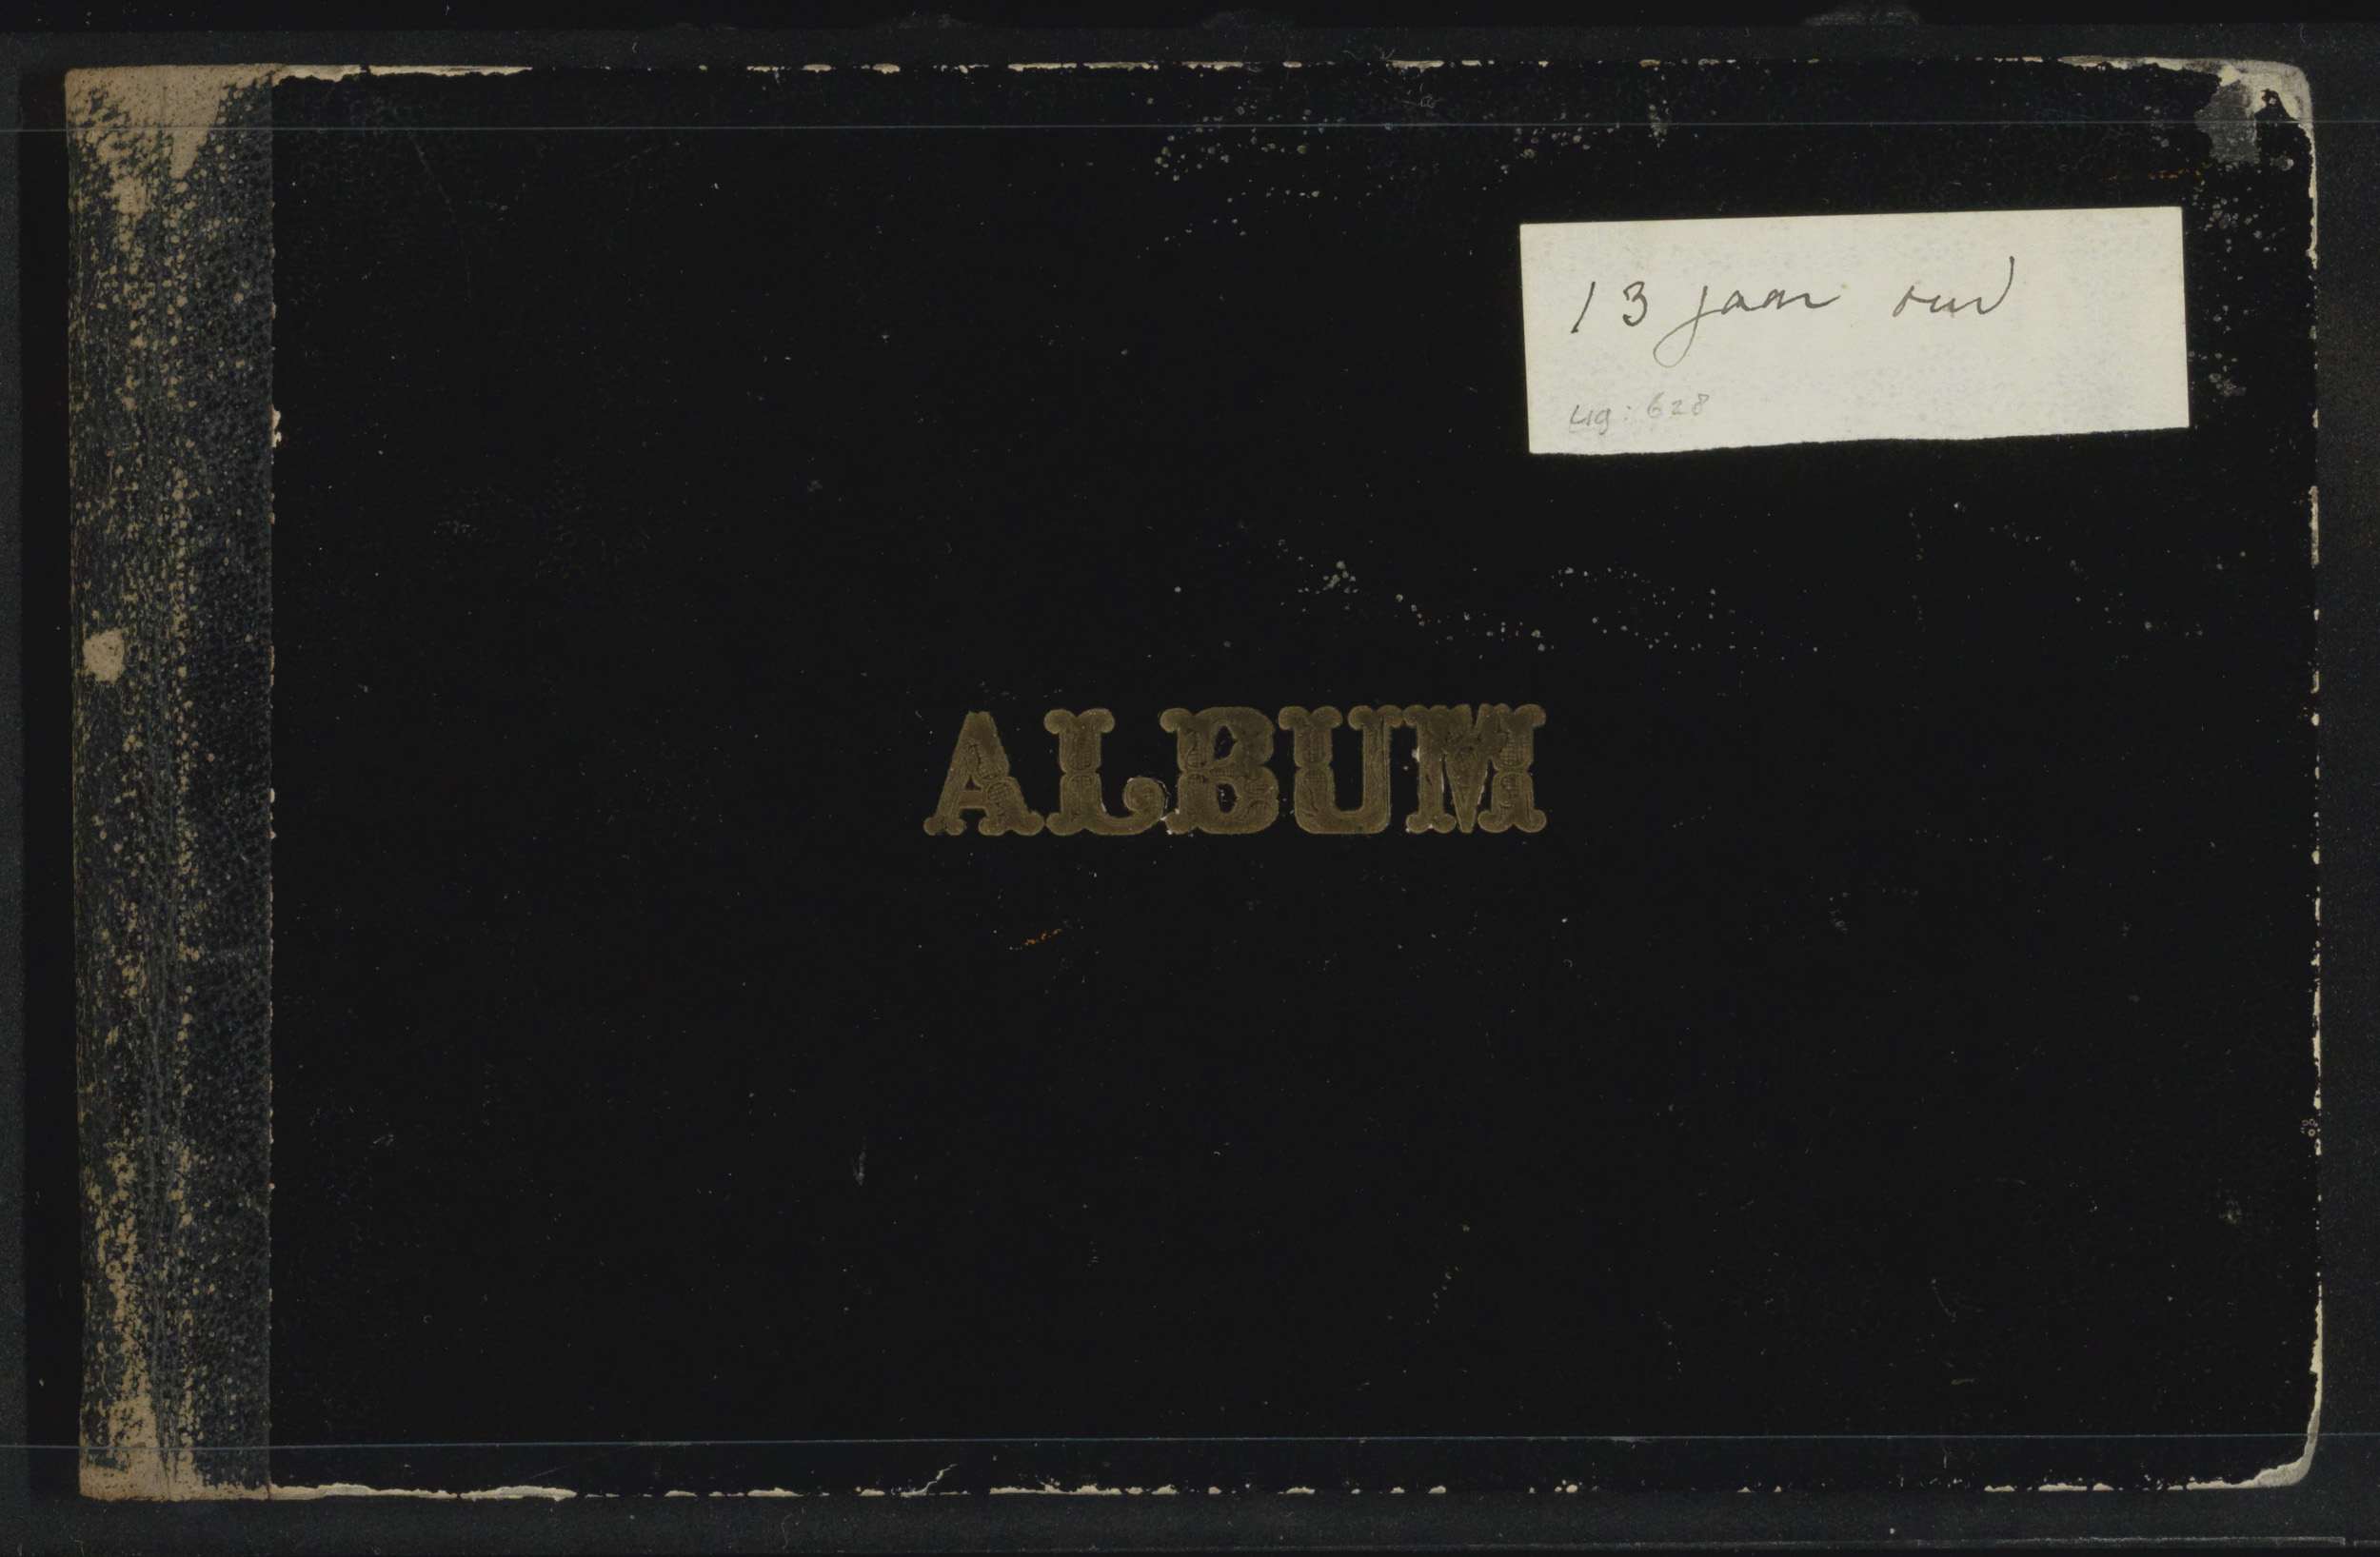 13 jaar oud
Lig: 628
ALBUM